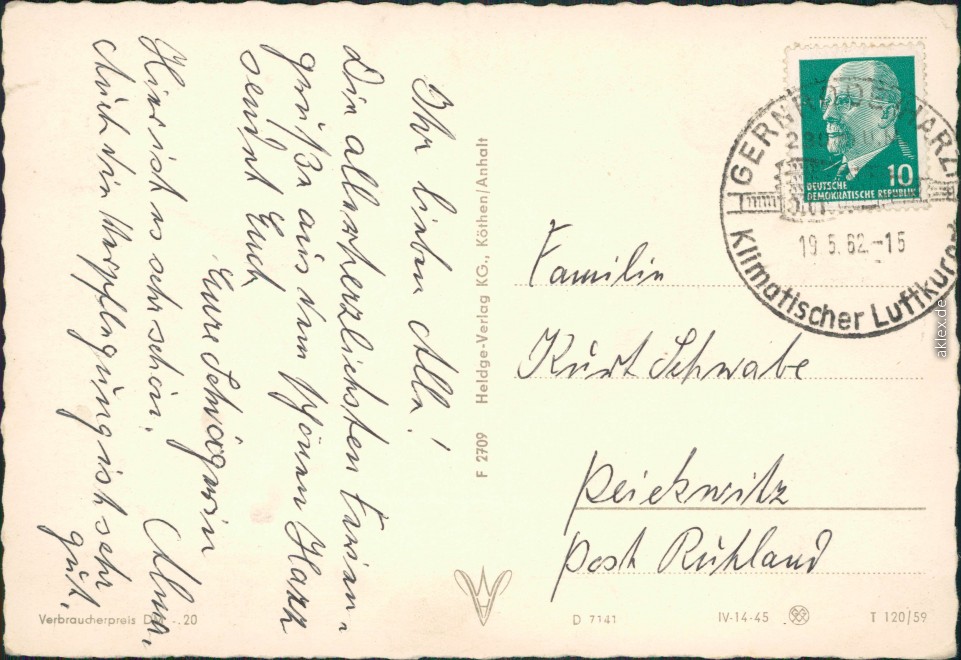 Ihr lieben Alle!
Die allerherzlichsten Ferien-
grüße aus dem schönen Harz
sendet Euch
Eure Schwägerin
Hier ist es sehr schön.
Auch die Verpflegung ist sehr
gut.
F 2709 Heldge-Verlag KG., Köthen/Anhalt
GERNRODE/HARZ
Klimatischer Luftkuro
19.5.62.-15
10
DEUTSCHE
DEMOKRATISCHE REPUBLIK
Familie
Kurt Schwabe
Peickwitz
Post Ruhland
Verbraucherpreis D -.20
D 7141
IV-14-45
T 120/59
aklex.de